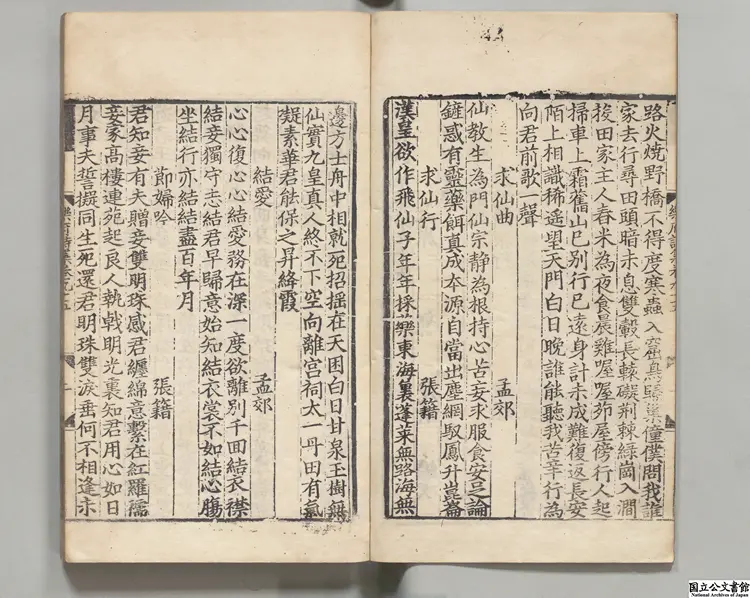 樂府詩集卷九十五
路火燒野橋不得度寒蟲入窟鳥歸巢僮僕問我誰
家去行尋田頭暗未息雙轂長轅礙荊棘緣崗入澗
投田家主人舂米為夜食晨雞喔喔茆屋傍行人起
掃車上霜舊山已別行已遠身計未成難復返長安
陌上相識稀遥望天門白日晚誰能聽我苦辛行為
向君前歌一聲
求仙曲 孟郊
仙教生為門仙宗静為根持心苦妄求服食安足論
鏟惑有靈藥餌真成本源自當出塵網馭鳳升崑崙
求仙行 張籍
漢皇欲作飛仙子年年採藥東海裏蓬萊無路海無
邊方士舟中相就死招揺在天囬白日甘泉玉樹無
仙實九皇真人終不下空向離宮祠太一丹田有氣
凝素華君能保之昇絳霞
結愛 孟郊
心心復心心結愛務在深一度欲離別千回結衣襟
結妾獨守志結君早歸意始知結衣裳不如結心腸
坐結行亦結結盡百年月
節婦吟 張籍
君知妾有夫贈妾雙明珠感君纏綿意繫在紅羅襦
妾家高樓連苑起良人執戟明光裏知君用心如日
月事夫誓擬同生死還君明珠雙淚垂何不相逢未
樂府詩集卷九十五
国立公文書館
National Archives of Japan